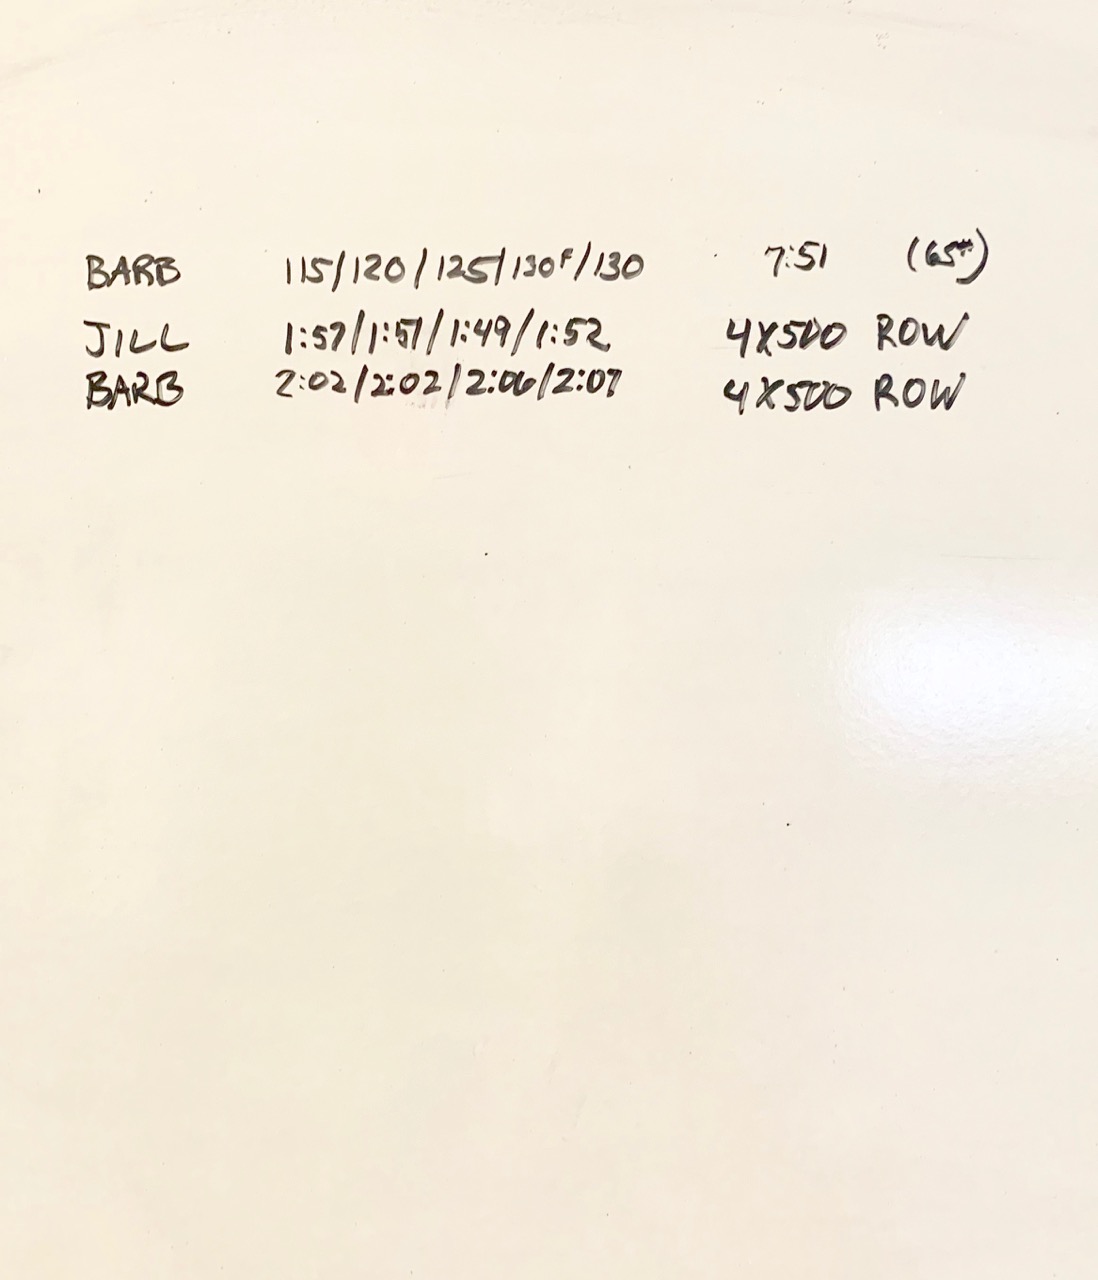 BARB 115/120/125/130F/130 7:51 (65#)
JILL 1:57/1:51/1:49/1:52 4X500 ROW
BARB 2:02/2:02/2:06/2:07 4X500 ROW